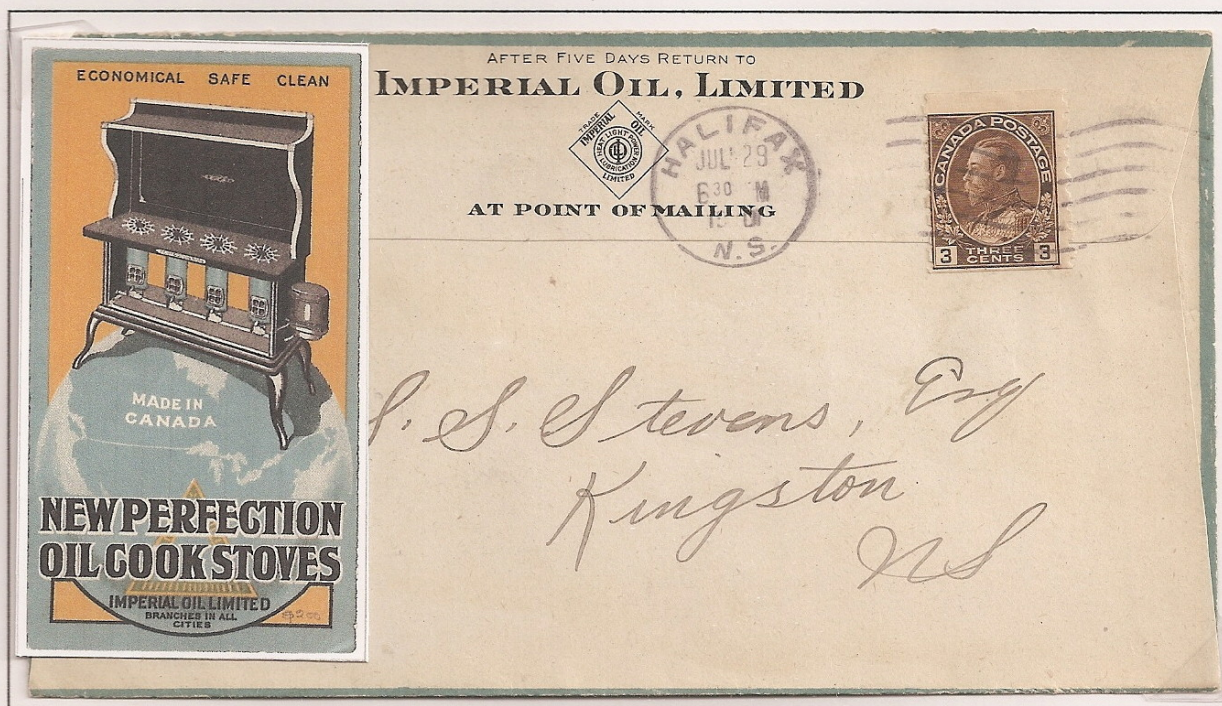 ECONOMICAL SAFE CLEAN
MADE IN
CANADA
NEW PERFECTION
OIL COOK STOVES
IMPERIAL OIL LIMITED
BRANCHES IN ALL
CITIES
AFTER FIVE DAYS RETURN TO
IMPERIAL OIL, LIMITED
TRADE MARK
IMPERIAL OIL
HEAT LIGHT POWER
LUBRICATION
LIMITED
AT POINT OF MAILING
HALIFAX
JUL 29
6 30 M
N.S.
CANADA POSTAGE
3 THREE CENTS 3
S. Stevens, Esq
Kingston
NS